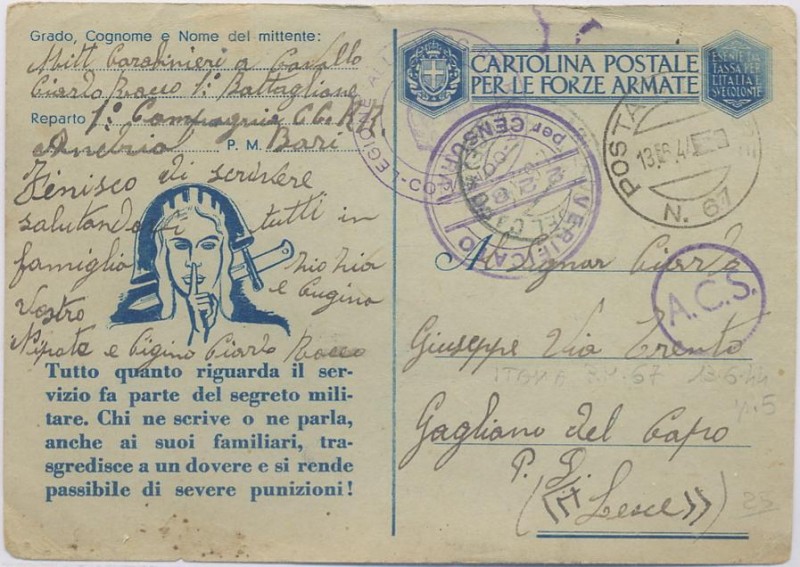 Grado, Cognome e Nome del mittente:
Mitt Carabinieri a Cavallo
Ciardo Rocco 1° Battaglione
Reparto 1° Compagnia CC. RR.
Andria P. M. Bari
Finisco di scrivere
salutandovi tutti in
famiglia zio zia
e Cugino
Vostro
Nipote e Cugino Ciardo Rocco
Tutto quanto riguarda il ser-
vizio fa parte del segreto mili-
tare. Chi ne scrive o ne parla,
anche ai suoi familiari, tra-
sgredisce a un dovere e si rende
passibile di severe punizioni!
CARTOLINA POSTALE
PER LE FORZE ARMATE
ESENTE DA
TASSA PER
L'ITALIA E
SVE COLONIE
LEGIONE
VERIFICATO
per CENSURA
POSTA
13.6.44
N. 67
A.C.S.
Al Signor Ciardo
Giuseppe Via Trento
P.M. 67 13-6-44
Gagliano del Capo
P. di
(Lecce)
25